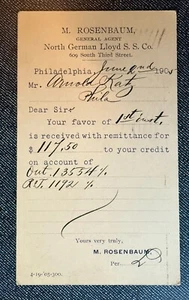 M. ROSENBAUM,
GENERAL AGENT
North German Lloyd S. S. Co.
609 South Third Street.
Philadelphia, June 2nd 190
Mr. Arnold Katz
Phila
Dear Sir:
Your favor of 1st inst.
is received with remittance for
$ 117,50 to your credit
on account of
Out. 13554
Rt. 1192
Yours very truly,
M. ROSENBAUM.
Per